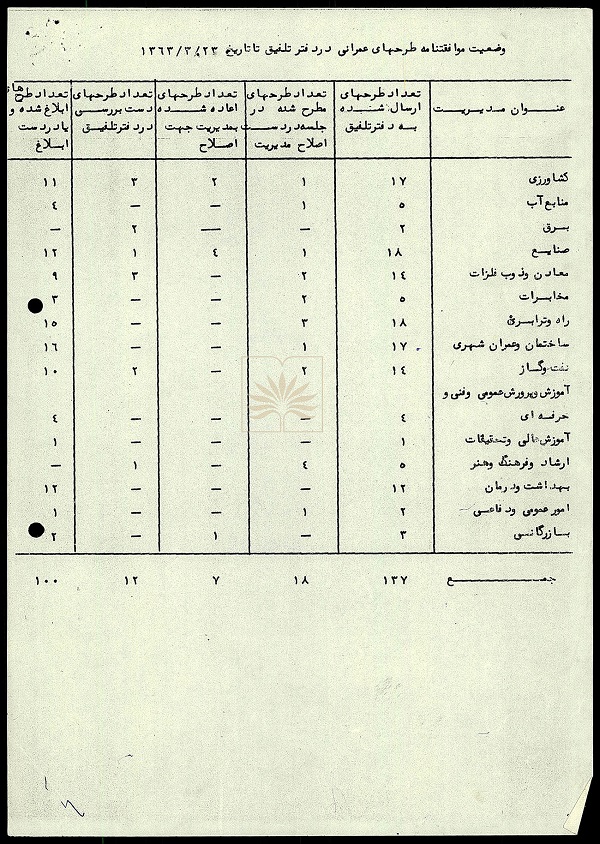 وضعیت موافقتنامه طرحهای عمرانی در دفتر تلفیق تا تاریخ ۱۳۶۳/۳/۲۳
عنوان مدیریت | تعداد طرحهای ارسال شده به دفتر تلفیق | تعداد طرحهای مطرح شده در جلسه در دست اصلاح مدیریت | تعداد طرحهای اعاده شده به مدیریت جهت اصلاح | تعداد طرحهای دست بررسی در دفتر تلفیق | تعداد طرحهای ابلاغ شده و یا در دست ابلاغ
کشاورزی ۱۷ ۱ ۲ ۳ ۱۱
منابع آب ۵ ۱ — — ۴
برق ۲ — — ۲ —
صنایع ۱۸ ۱ ۴ ۱ ۱۲
معادن و ذوب فلزات ۱۴ ۲ — ۳ ۹
مخابرات ۵ ۲ — — ۳
راه و ترابری ۱۸ ۳ — — ۱۵
ساختمان و عمران شهری ۱۷ ۱ — — ۱۶
نفت و گاز ۱۴ ۲ — ۲ ۱۰
آموزش و پرورش عمومی و فنی و
حرفه ای ۴ — — — ۴
آموزش عالی و تحقیقات ۱ — — — ۱
ارشاد و فرهنگ و هنر ۵ ۴ — ۱ —
بهداشت و درمان ۱۲ — — — ۱۲
امور عمومی و دفاعی ۲ ۱ — — ۱
بازرگانی ۳ — ۱ — ۲
جمع ۱۳۷ ۱۸ ۷ ۱۲ ۱۰۰